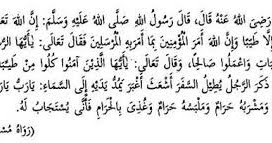 رَضِيَ اللهُ عَنْهُ قَالَ، قَالَ رَسُوْلُ اللهِ صَلَّى اللهُ عَلَيْهِ وَسَلَّمَ: إِنَّ اللهَ تَعَ
إِلَّا طَيِّبًا وَإِنَّ اللهَ أَمَرَ الْمُؤْمِنِيْنَ بِمَا أَمَرَ بِهِ الْمُرْسَلِيْنَ فَقَالَ تَعَالَى: يٰأَيُّهَا الرُّ
بَاتِ وَاعْمَلُوا صَالِحًا، وَقَالَ تَعَالَى: يٰأَيُّهَا الَّذِيْنَ آمَنُوا كُلُوا مِنْ طَيِّبَ
ذَكَرَ الرَّجُلَ يُطِيْلُ السَّفَرَ أَشْعَثَ أَغْبَرَ يَمُدُّ يَدَيْهِ إِلَى السَّمَاءِ: يَارَبِّ يَارَبِّ
وَمَشْرَبُهُ حَرَامٌ وَمَلْبَسُهُ حَرَامٌ وَغُذِيَ بِالْحَرَامِ فَأَنَّى يُسْتَجَابُ لَهُ.
(رَوَاهُ مُسْ